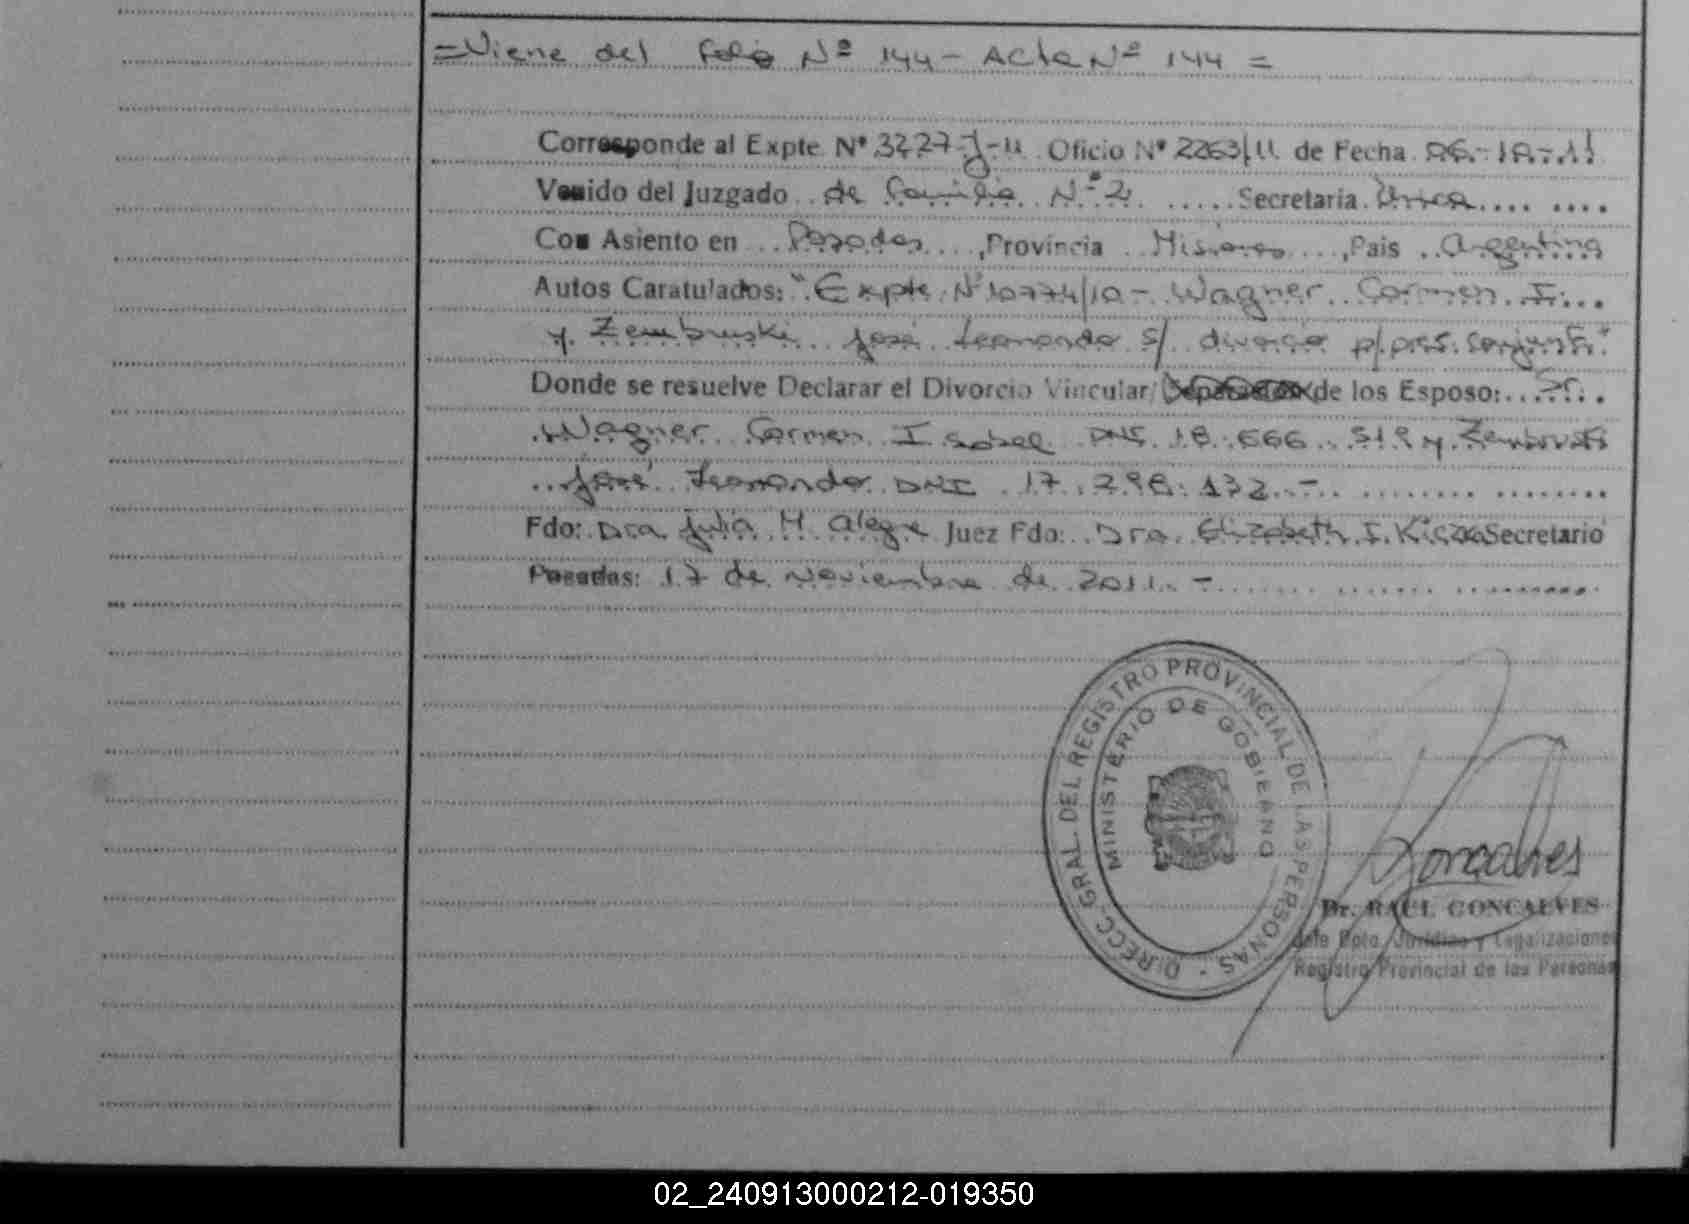 =Viene del folio Nº 144- Acta Nº 144 =
Corresponde al Expte. Nº 3227-J-11 Oficio Nº 2263/11 de Fecha 06-10-11
Venido del Juzgado de Familia Nº 2 Secretaria Única
Con Asiento en Posadas, Provincia Misiones, País Argentina
Autos Caratulados: "Expte. Nº 10774/10- Wagner Carmen I.
y Zembruski José Fernando s/ divorcio p/pres. conjunta"
Donde se resuelve Declarar el Divorcio Vincular/ de los Esposo: Sr.
Wagner Carmen Isabel DNI 18.666.519 y Zembruski
José Fernando DNI 17.298.132.-
Fdo: Dra Julia H. Alegre Juez Fdo: Dra. Elizabeth I. Secretario
Posadas: 17 de Noviembre de 2011.-
DIRECC. GRAL. DEL REGISTRO PROVINCIAL DE LAS PERSONAS
MINISTERIO DE GOBIERNO
Goncalves
Dr. RAUL GONCALVES
Jefe Dpto. Jurídico y Legalizaciones
Registro Provincial de las Personas
02_240913000212-019350